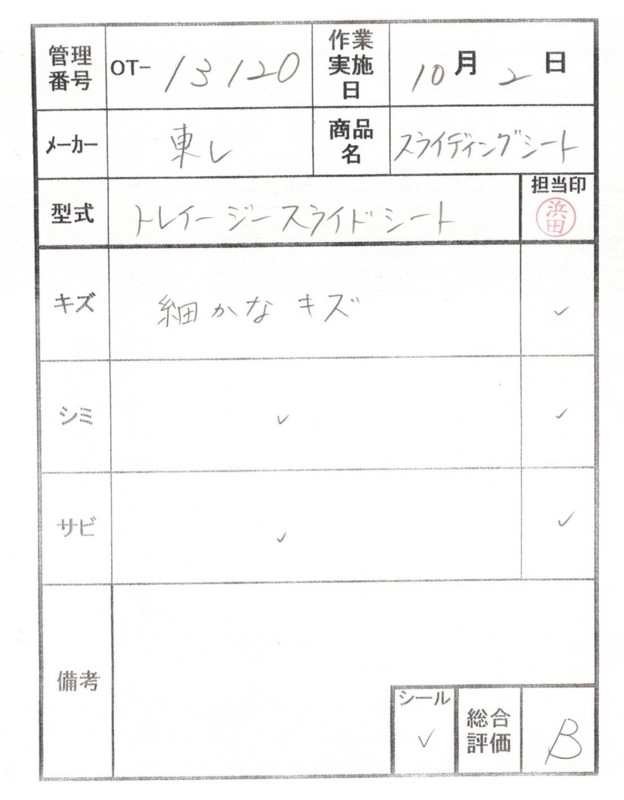 管理番号 OT- 13120 作業実施日 10月2日
メーカー 東レ 商品名 スライディングシート
型式 トレイージースライドシート 担当印 浜田
キズ 細かなキズ ✓
シミ ✓ ✓
サビ ✓ ✓
備考
シール ✓ 総合評価 B